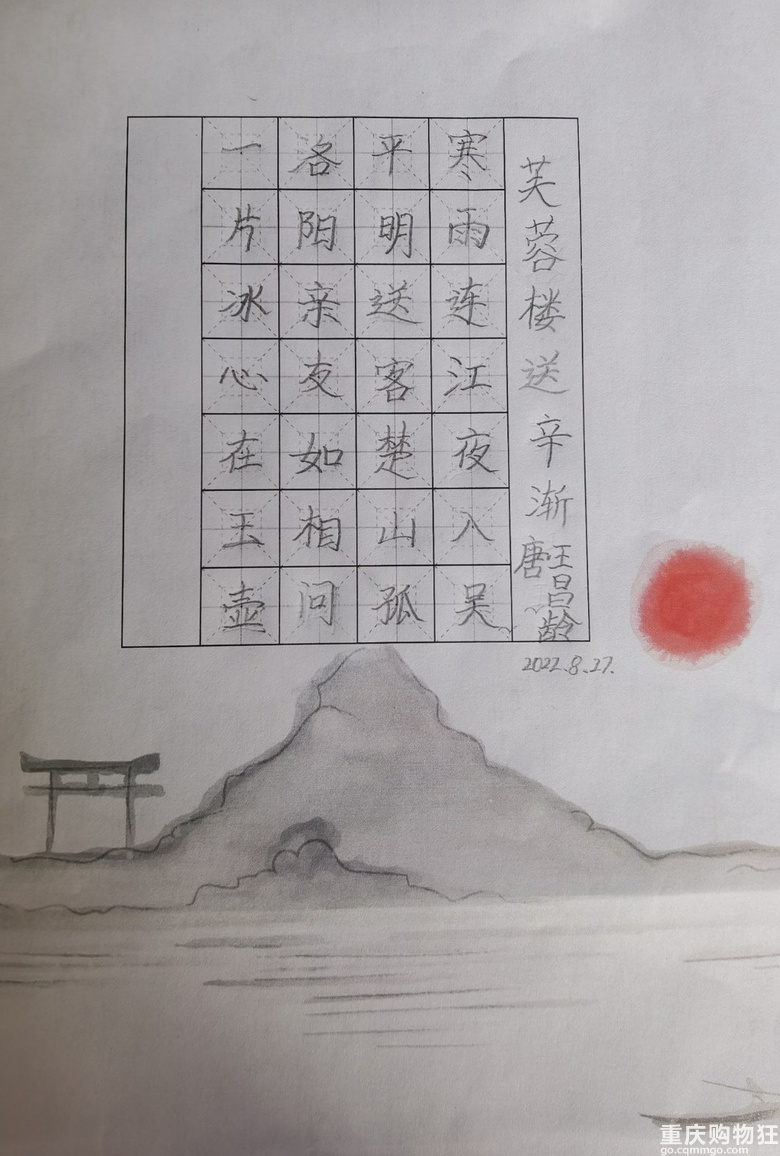 芙蓉楼送辛渐
唐 王昌龄
寒雨连江夜入吴
平明送客楚山孤
各阳亲友如相问
一片冰心在玉壶
2022.8.27.
重庆购物狂
go.cqmmgo.com